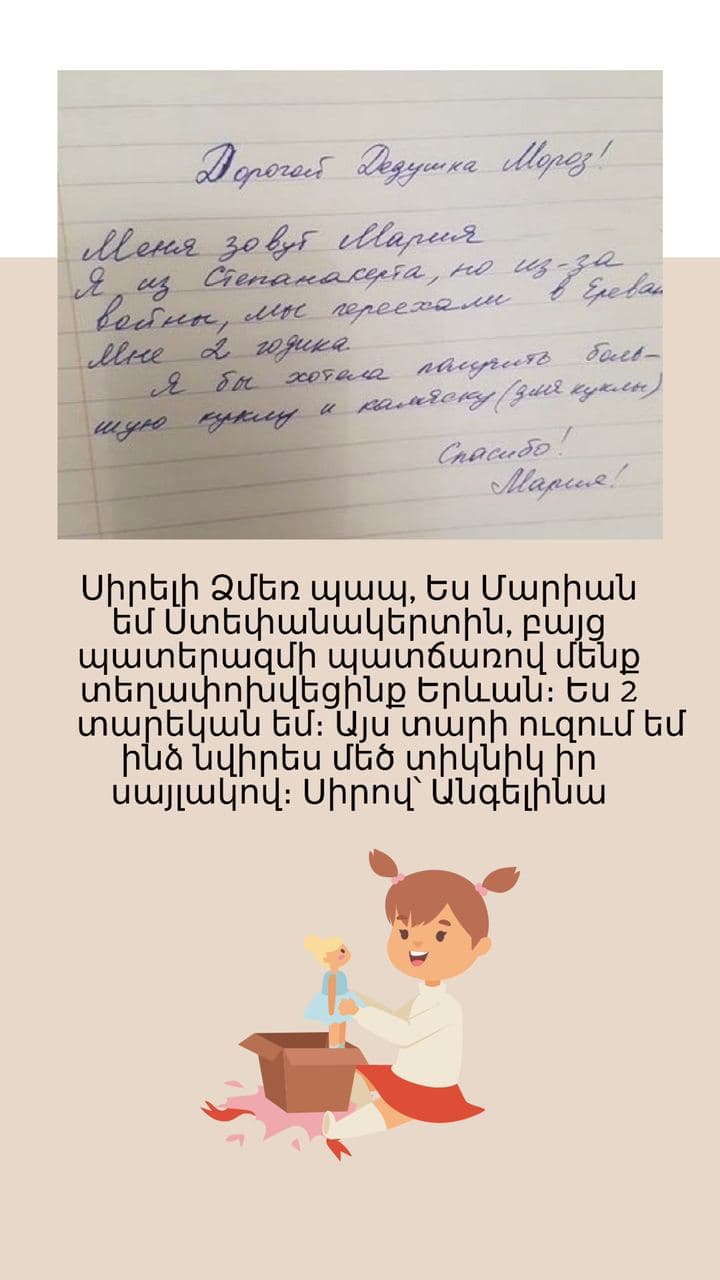 Дорогой Дедушка Мороз!
Меня зовут Мария
Я из Степанакерта, но из-за
войны, мы переехали в Ереван
Мне 2 годика
Я бы хотела получить боль-
шую куклу и коляску (для куклы)
Спасибо!
Мария!
Սիրելի Ձմեռ պապ, Ես Մարիան
եմ Ստեփանակերտին, բայց
պատերազմի պատճառով մենք
տեղափոխվեցինք Երևան։ Ես 2
տարեկան եմ։ Այս տարի ուզում եմ
ինձ նվիրես մեծ տիկնիկ իր
սայլակով։ Սիրով՝ Անգելինա